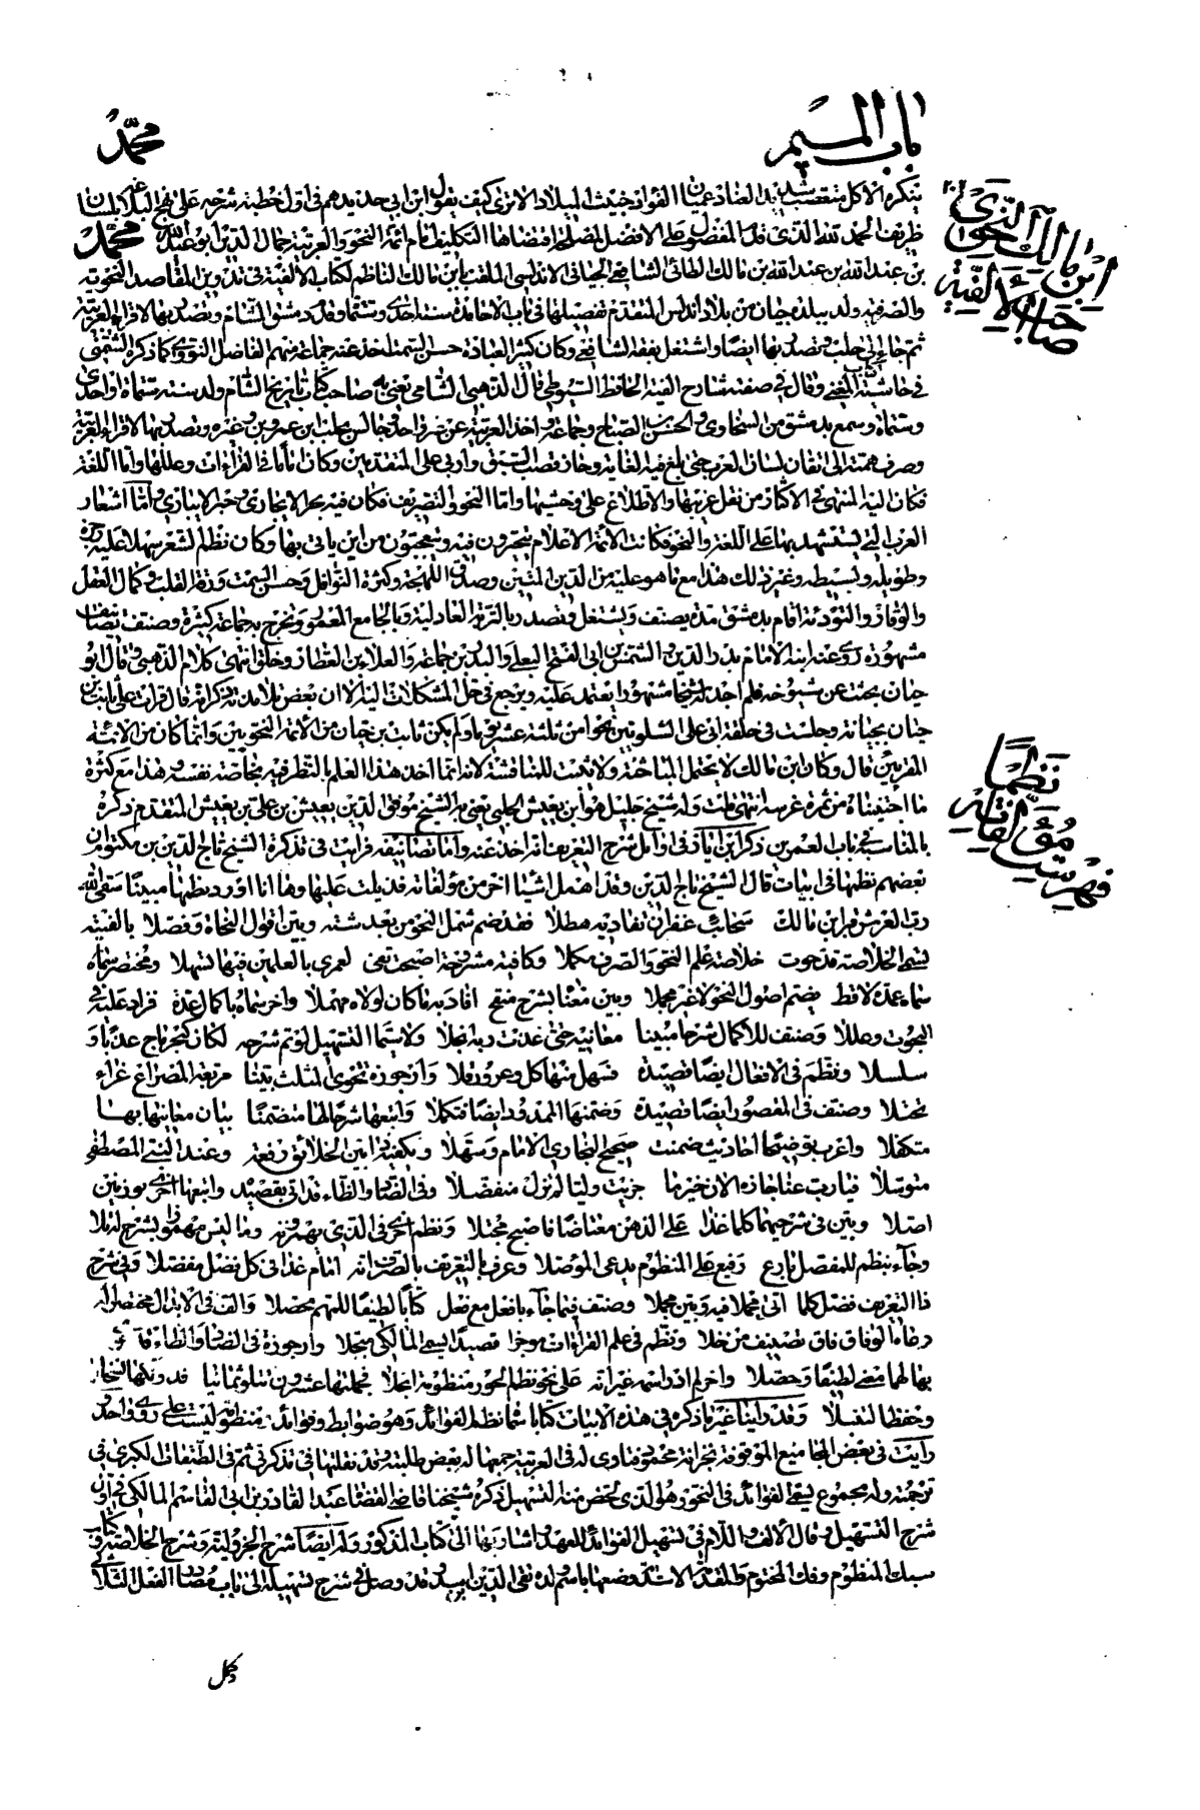 باب الميم
محمد
ابن مالك النحوي
صاحب الألفية
ينكره الا كل متعصب شديد العناد عميان الفؤاد خبيث الميلاد الا ترى كيف يقول ابن ابي حديدهم في اول خطبة شرحه على نهج البلاغة بلسان
ظريف الحمد لله الذي قدم المفضول على الافضل لمصلحة اقتضاها التكليف امام ائمة النحو والعربية جمال الدين ابو عبد الله محمد
بن عبد الله بن عبد الله بن مالك الطائي الشافعي الجياني الاندلسي الملقب بابن مالك الناظم لكتاب الالفية في تدوين المقاصد النحويه
والصرفيه ولد ببلدة جيان من بلاد اندلس المتقدم تفصيلها في باب الاحامدة سنة احدى وستمائة وقدم دمشق الشام وتصدر بها لاقراء العربية
ثم جاء الى حلب وتصدر بها ايضا واشتغل بفقه الشافعي وكان كثير العبادة حسن السمت اخذ عنه جماعة منهم الفاضل النووي كما ذكره الشمني
في حاشية المغني وقال في صفته شارح الفية الحافظ السيوطي قال الذهبي الشامي يعني به صاحب كتاب تاريخ الشام ولد سنة ستمائة او احدى
وستمائة وسمع بدمشق من السخاوي والحسن بن الصباح وجماعة واخذ العربية عن غير واحد وجالس بحلب ابن عمرون وغيره وتصدر بها لاقراء العربية
وصرف همته الى اتقان لسان العرب حتى بلغ فيه الغاية وحاز قصب السبق واربى على المتقدمين وكان اماما في القراءات وعللها واما اللغة
فكان اليه المنتهى في الاكثار من نقل غريبها والاطلاع على وحشيها واما النحو والتصريف فكان فيه بحرا لا يجارى وحبرا لا يبارى واما اشعار
العرب التي يستشهد بها على اللغة والنحو فكانت الائمة الاعلام يتحيرون فيه ويتعجبون من اين ياتي بها وكان نظم الشعر سهلا عليه رجزه
وطويله وبسيطه وغير ذلك هذا مع ما هو عليه من الدين المتين وصدق اللهجة وكثرة النوافل وحسن السمت ورقة القلب وكمال العقل
والوقار والتؤدة اقام بدمشق مدة يصنف ويشتغل وتصدر بالتربة العادلية وبالجامع المعمور وتخرج به جماعة كثيرة وصنف تصانيف
مشهورة روى عنه ابنه الامام بدر الدين والشمس بن ابي الفتح البعلي والبدر بن جماعة والعلاء بن العطار وخلق انتهى كلام الذهبي وقال ابو
حيان بحثت عن شيوخه فلم اجد له شيخا مشهورا يعتمد عليه ويرجع في حل المشكلات اليه الا ان بعض تلامذته ذكر انه قال قرات على ثابت بن
حيان بجيان وجلست في حلقة ابي علي الشلوبين نحوا من ثلثة عشر يوما ولم يكن ثابت بن حيان من الائمة النحويين وانما كان من الائمة
المقريين قال وكان ابن مالك لا يحتمل المباحثة ولا يثبت للمناقشة لانه انما اخذ هذا العلم بالنظر فيه بخاصة نفسه هذا مع كثرة
ما اجتنيناه من ثمرة غرسه انتهى قلت وله شيخ جليل هو ابن يعيش الحلبي يعني به الشيخ موفق الدين يعيش بن علي بن يعيش المتقدم ذكره
نظما
مؤلفاته
فهرست
بعضهم نظمها في ابيات قال الشيخ تاج الدين وقد اهمل اشيا اخر من مؤلفاته فذيلت عليها وها انا اورد نظمها مبينا سقى الله
رب العرش قبر ابن مالك سحائب غفران تغاديه هطلا فقد ضم شمل النحو من بعد شته وبين اقوال النحاة وفصلا بالفية
تسمى الخلاصة قد حوت خلاصة علم النحو والصرف مكملا وكافية مشروحة اصبحت تفي لعمري بالعلمين فيها تسهلا ومختصر سماه
سماه عمدة لاقط يضم اصول النحو لا غير مجملا وبين معناه بشرح منقح افاد به ما كان لولاه مهملا واخر سماه باكمال عمدة فزاد عليه في
البحوث وعللا وصنف للاكمال شرحا مبينا معانيه حتى غدت ربة انجلا ولا سيما التسهيل لو تم شرحه لكان كبحر ماج عذبا و
سلسلا ونظم في الافعال ايضا قصيدة فسهل منها كل وعر وذللا وارجوزة تحوي المثلث بينا مربعة المصراع غراء
تجتلا وصنف في المقصور ايضا قصيدة وضمنها الممدود ايضا فتكملا واتبعها شرحا لها متضمنا بيان معانيها بها
متكفلا واعرب توضيحا احاديث ضمنت صحيح البخاري الامام وسهلا ويكفيه ذا بين الخلائق رفعة وعند النبي المصطفى
متوسلا فيا رب عنا جازه الان خير ما جزيت وليا لم يزل متفضلا وفي الضاد والظاء قد اتى بقصيدة واتبعها اخرى بوزنين
اصلا وبين في شرحيهما كلما غدا على الذهن معتاصا فاصبح مجتلا ونظم اخرى في الذي يهمزونه وما ليس مهموزا بشرح له تلا
وجاء بنظم للمفصل بارع وقيع على المنظوم يدعى الموصلا وعرف بالتعريف بالصرف انه امام غدا في كل فضل مفضلا وفي شرح
ذا التعريف فصل كلما اتى مجملا فيه وبين مجملا وصنف فيما جاء بافعل مع فعل كتابا لطيفا للمهم محصلا والف في الابدال مختصرا له
دعاه الوفاق فاق تصنيف من خلا ونظم في علم القراءات موجزا قصيدا يسمى المالكي مبجلا وارجوزة في الضاد والظاء قد
بها لهما معنى لطيفا وحصلا
وحفظا لتعقلا وقد راينا غير ما ذكره في هذه الابيات كتابا سماه نظم الفوائد وهو ضوابط وفوائد منظومة ليست على روي واحد و
رايت في بعض المجاميع الموقوفة بخزانة محمود فتاوى له في العربية جمعها له بعض طلبته وقد نقلتها في تذكرتي ثم في الطبقات الكبرى في
ترجمته وله مجموع يسمى الفوائد في النحو وهو الذي لخص منه التسهيل ذكره شيخنا قاضي القضاة عبد القادر بن ابي القاسم المالكي في اول
شرح التسهيل وقال الالف واللام في تسهيل الفوائد للعهد اشار بها الى الكتاب المذكور وله ايضا شرح الجزولية وشرح الخلاصة
سبك المنظوم وفك المختوم والمقدمة الاسدية وضعها باسم ولده تقي الدين اسد وقد وصل في شرح تسهيله الى باب مصادر الفعل الثلاثي